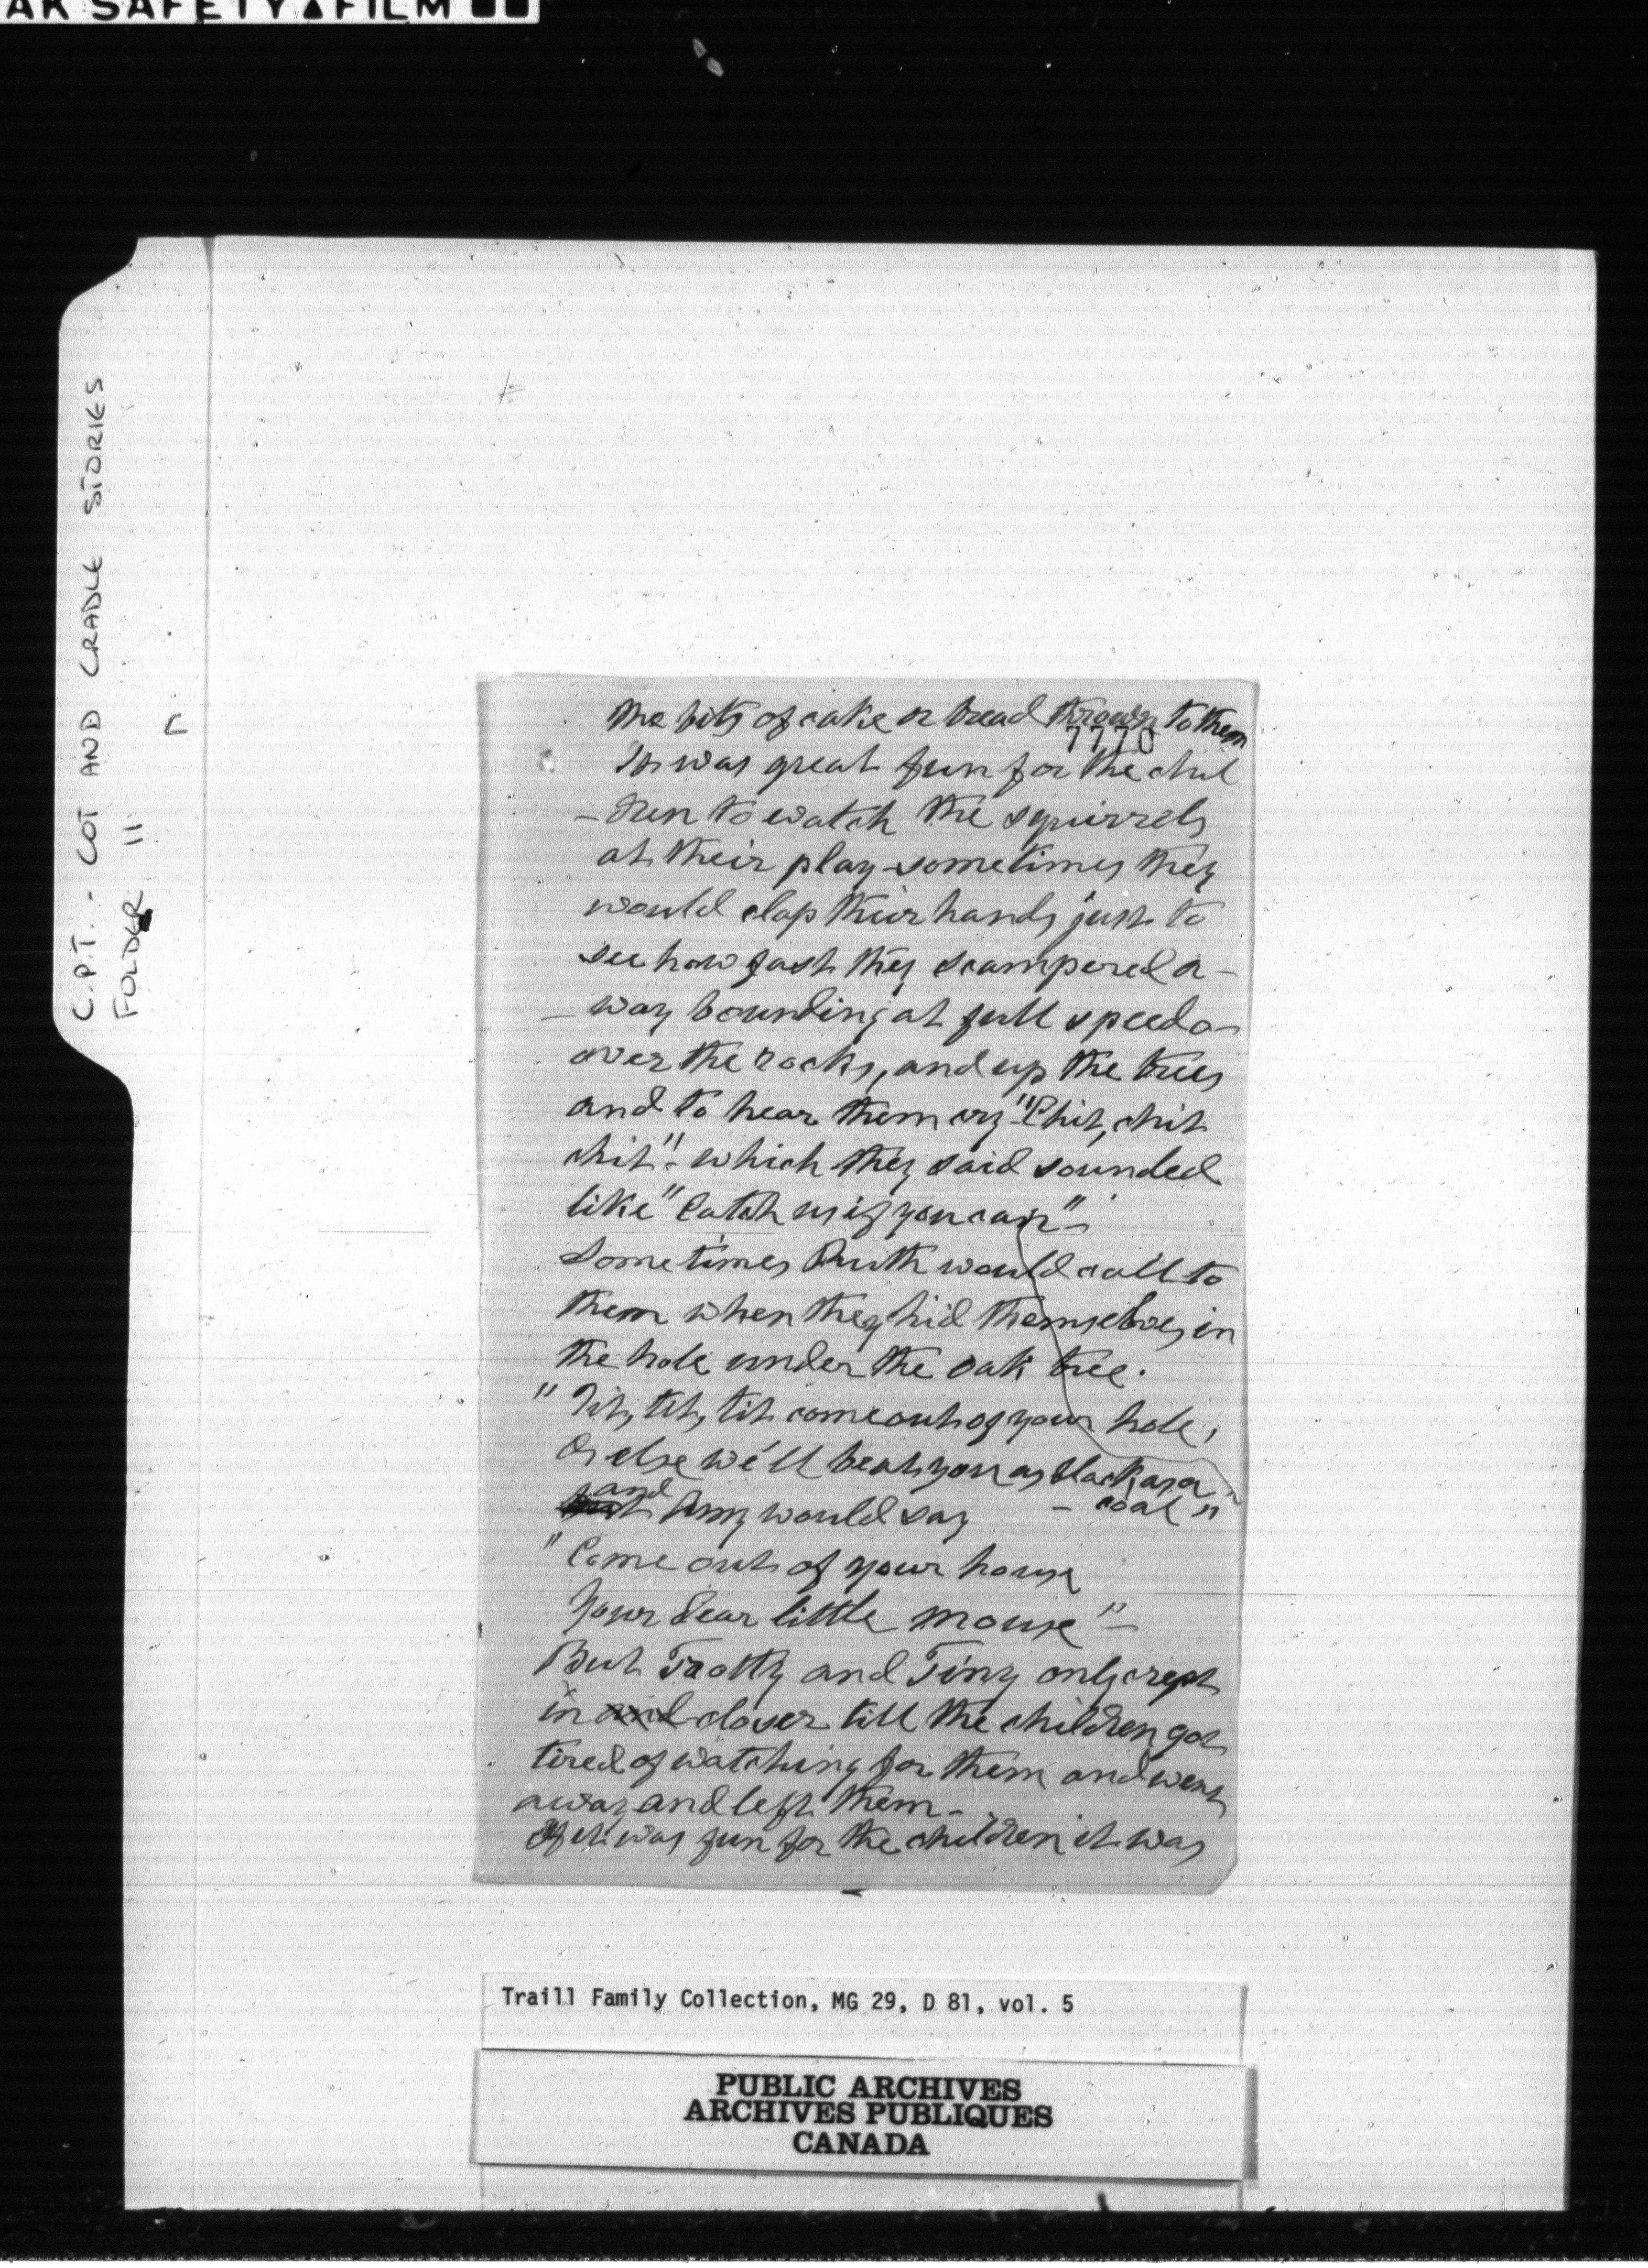 AK SAFETY▲FILM ■■
C.P.T. - COT AND CRADLE STORIES
FOLDER 11
the bits of cake or bread thrown to them
7770
It was great fun for the chil
-dren to watch the squirrels
at their play - sometimes they
would clap their hands just to
see how fast they scampered a-
-way bounding at full speed o-
over the rocks, and up the trees
and to hear them cry "Chit, chit
chit" - which they said sounded
like "Catch us if you can" -
Sometimes Ruth would call to
them when they hid themselves in
the hole under the oak tree.
"Tit, tit, tit come out of your hole,
Or else we'll beat you as black as a
- coal"
and
but Amy would say
"Come out of your house
Your dear little mouse" -
But Trotty and Tiny only crept
in and closer till the children got
tired of watching for them and went
away and left them -
If it was fun for the children it was
Traill Family Collection, MG 29, D 81, vol. 5
PUBLIC ARCHIVES
ARCHIVES PUBLIQUES
CANADA